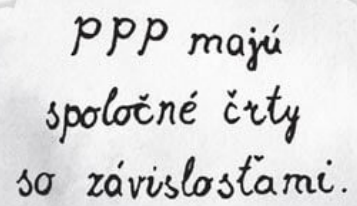 PPP majú
spoločné črty
so závislosťami.